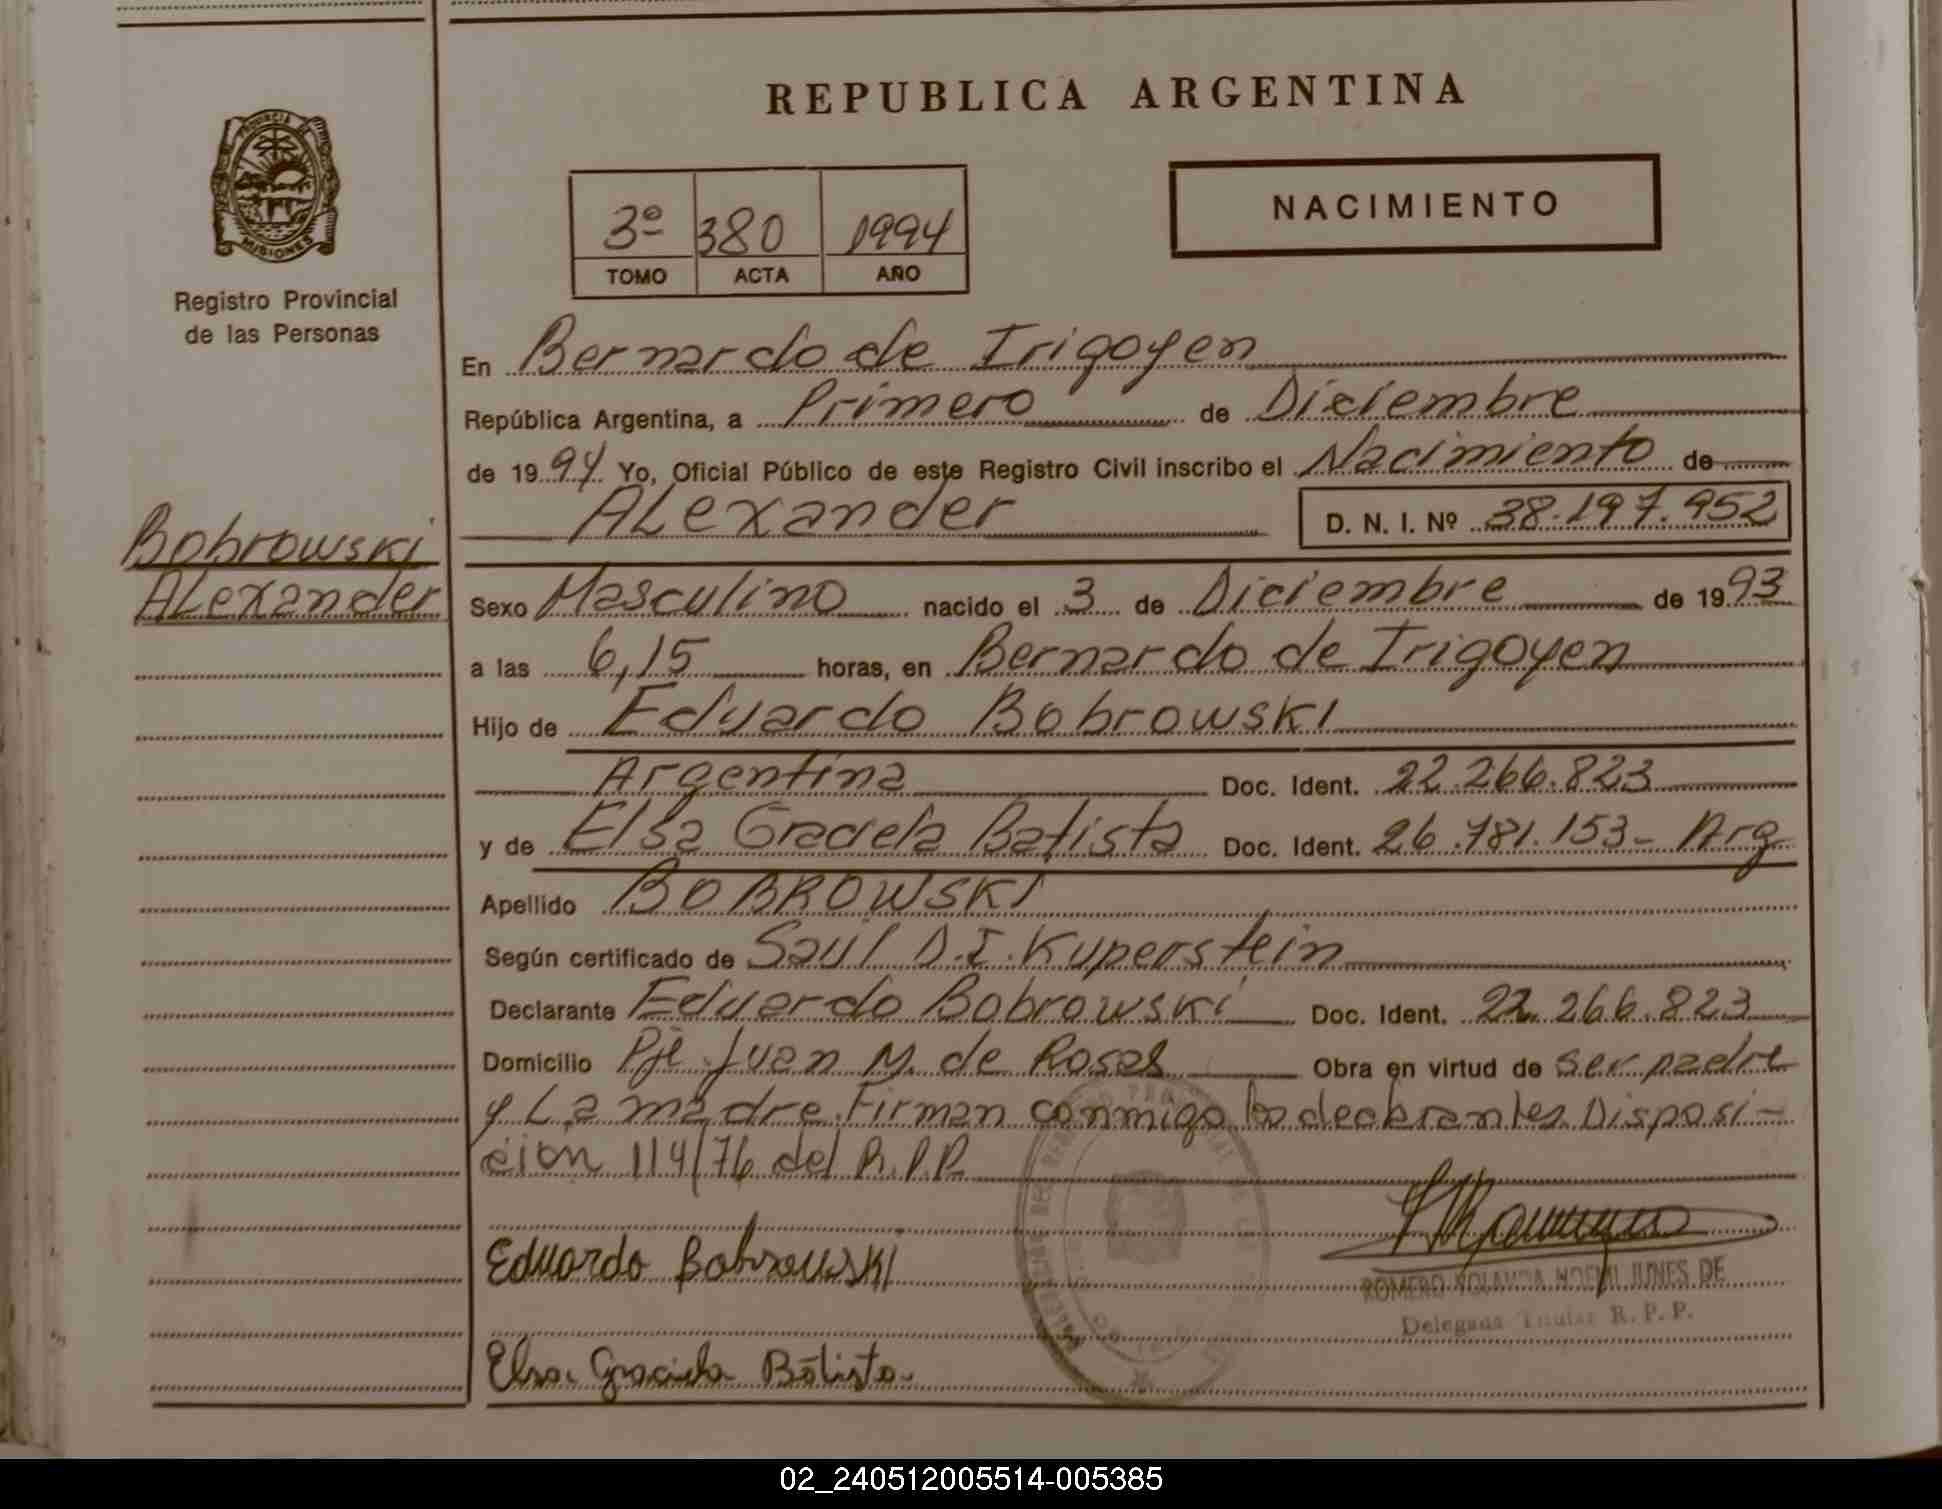 REPUBLICA ARGENTINA
PROVINCIA DE
MISIONES
Registro Provincial
de las Personas
3º 380 1994
TOMO ACTA AÑO
NACIMIENTO
En Bernardo de Irigoyen
República Argentina, a Primero de Diciembre
de 1994 Yo, Oficial Público de este Registro Civil inscribo el Nacimiento de
Alexander D. N. I. Nº 38.197.952
Bobrowski
Alexander
Sexo Masculino nacido el 3 de Diciembre de 1993
a las 6,15 horas, en Bernardo de Irigoyen
Hijo de Eduardo Bobrowski
Argentina Doc. Ident. 22.266.823
y de Elsa Graciela Batista Doc. Ident. 26.781.153- Arg
Apellido BOBROWSKI
Según certificado de Saúl D.I. Kuperstein
Declarante Eduardo Bobrowski Doc. Ident. 22.266.823
Domicilio Pje Juan M. de Rosas Obra en virtud de ser padre
y La madre. Firman conmigo los declarantes. Disposi-
ción 114/76 del R.P.P.
Eduardo Bobrowski
ROMERO YOLANDA NOEMI JUNES DE
Delegada Titular R. P. P.
Elsa Graciela Batista.
02_240512005514-005385